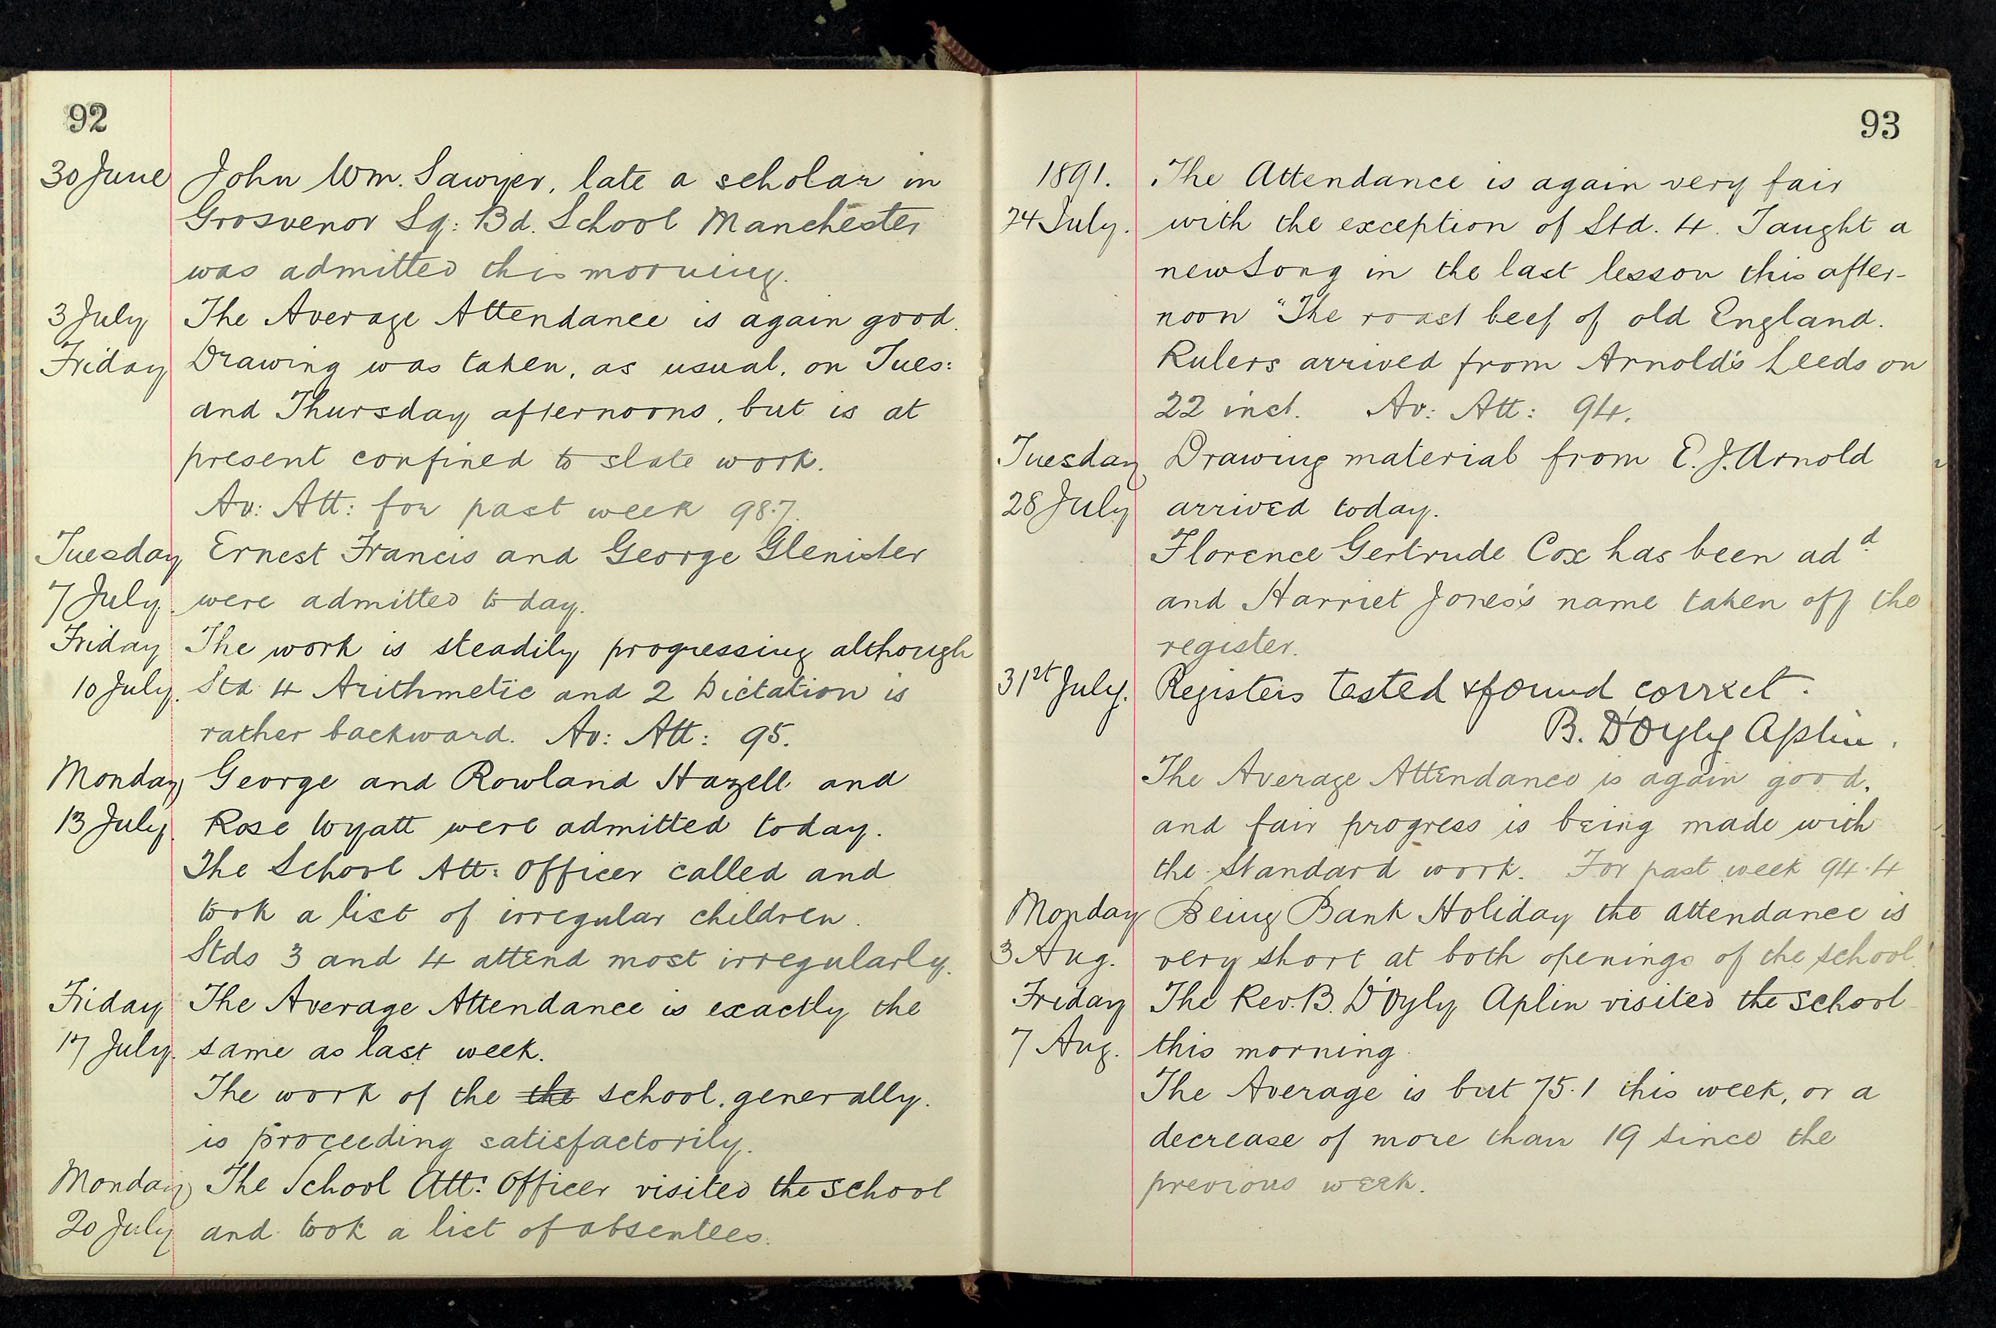 92
30 June John Wm. Sawyer, late a scholar in
Grosvenor Sq: Bd. School Manchester
was admitted this morning.
3 July The Average Attendance is again good.
Friday Drawing was taken, as usual, on Tues:
and Thursday afternoons, but is at
present confined to slate work.
Av: Att: for past week 98.7
Tuesday Ernest Francis and George Glenister
7 July. were admitted to day.
Friday The work is steadily progressing although
10 July. Std 4 Arithmetic and 2 Dictation is
rather backward. Av: Att: 95.
Monday George and Rowland Hazell and
13 July. Rose Wyatt were admitted today.
The School Att: Officer called and
took a list of irregular children.
Stds 3 and 4 attend most irregularly.
Friday The Average Attendance is exactly the
17 July. same as last week.
The work of the the school, generally.
is proceeding satisfactorily.
Monday The School Att: Officer visited the school
20 July and took a list of absentees.
93
1891. The Attendance is again very fair
24 July. with the exception of Std. 4. Taught a
new Song in the last lesson this after-
noon "The roast beef of old England.
Rulers arrived from Arnold's Leeds on
22 inst. Av: Att: 94.
Tuesday Drawing material from E. J. Arnold
28 July arrived today.
Florence Gertrude Cox has been add
and Harriet Jones's name taken off the
register.
31st July. Registers tested & found correct.
B. D'Oyly Aplin.
The Average Attendance is again good,
and fair progress is being made with
the Standard work. For past week 94.4
Monday Being Bank Holiday the attendance is
3 Aug. very short at both openings of the school.
Friday The Rev. B. D'Oyly Aplin visited the school
7 Aug. this morning.
The Average is but 75.1 this week, or a
decrease of more than 19 since the
previous week.